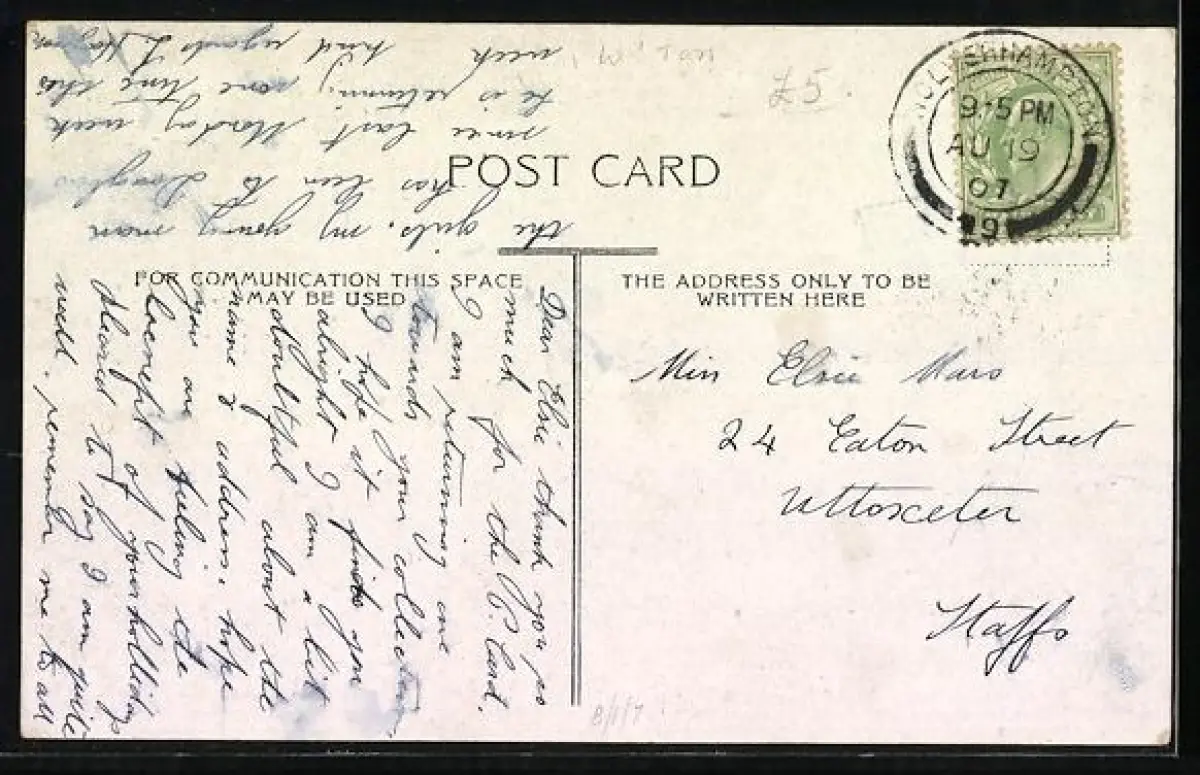 W'ton
£5.
WOLVERHAMPTON
9-5 PM
AU 19
07
POST CARD
FOR COMMUNICATION THIS SPACE
MAY BE USED
THE ADDRESS ONLY TO BE
WRITTEN HERE
Miss Elsie Mars
24 Eaton Street
Uttoxeter
Staffs
Dear Elsie thank you so
much for the P. Card.
I am returning one
towards your collection
I hope it finds you
alright I am a bit
doubtful about the
name & address. hope
you are feeling the
benefit of your holliday
pleased to say I am quite
well. remember me to all
the girls. my young man
has been to Douglas
since last Monday week
he is returning some time this
week kind regards L
8/1/7